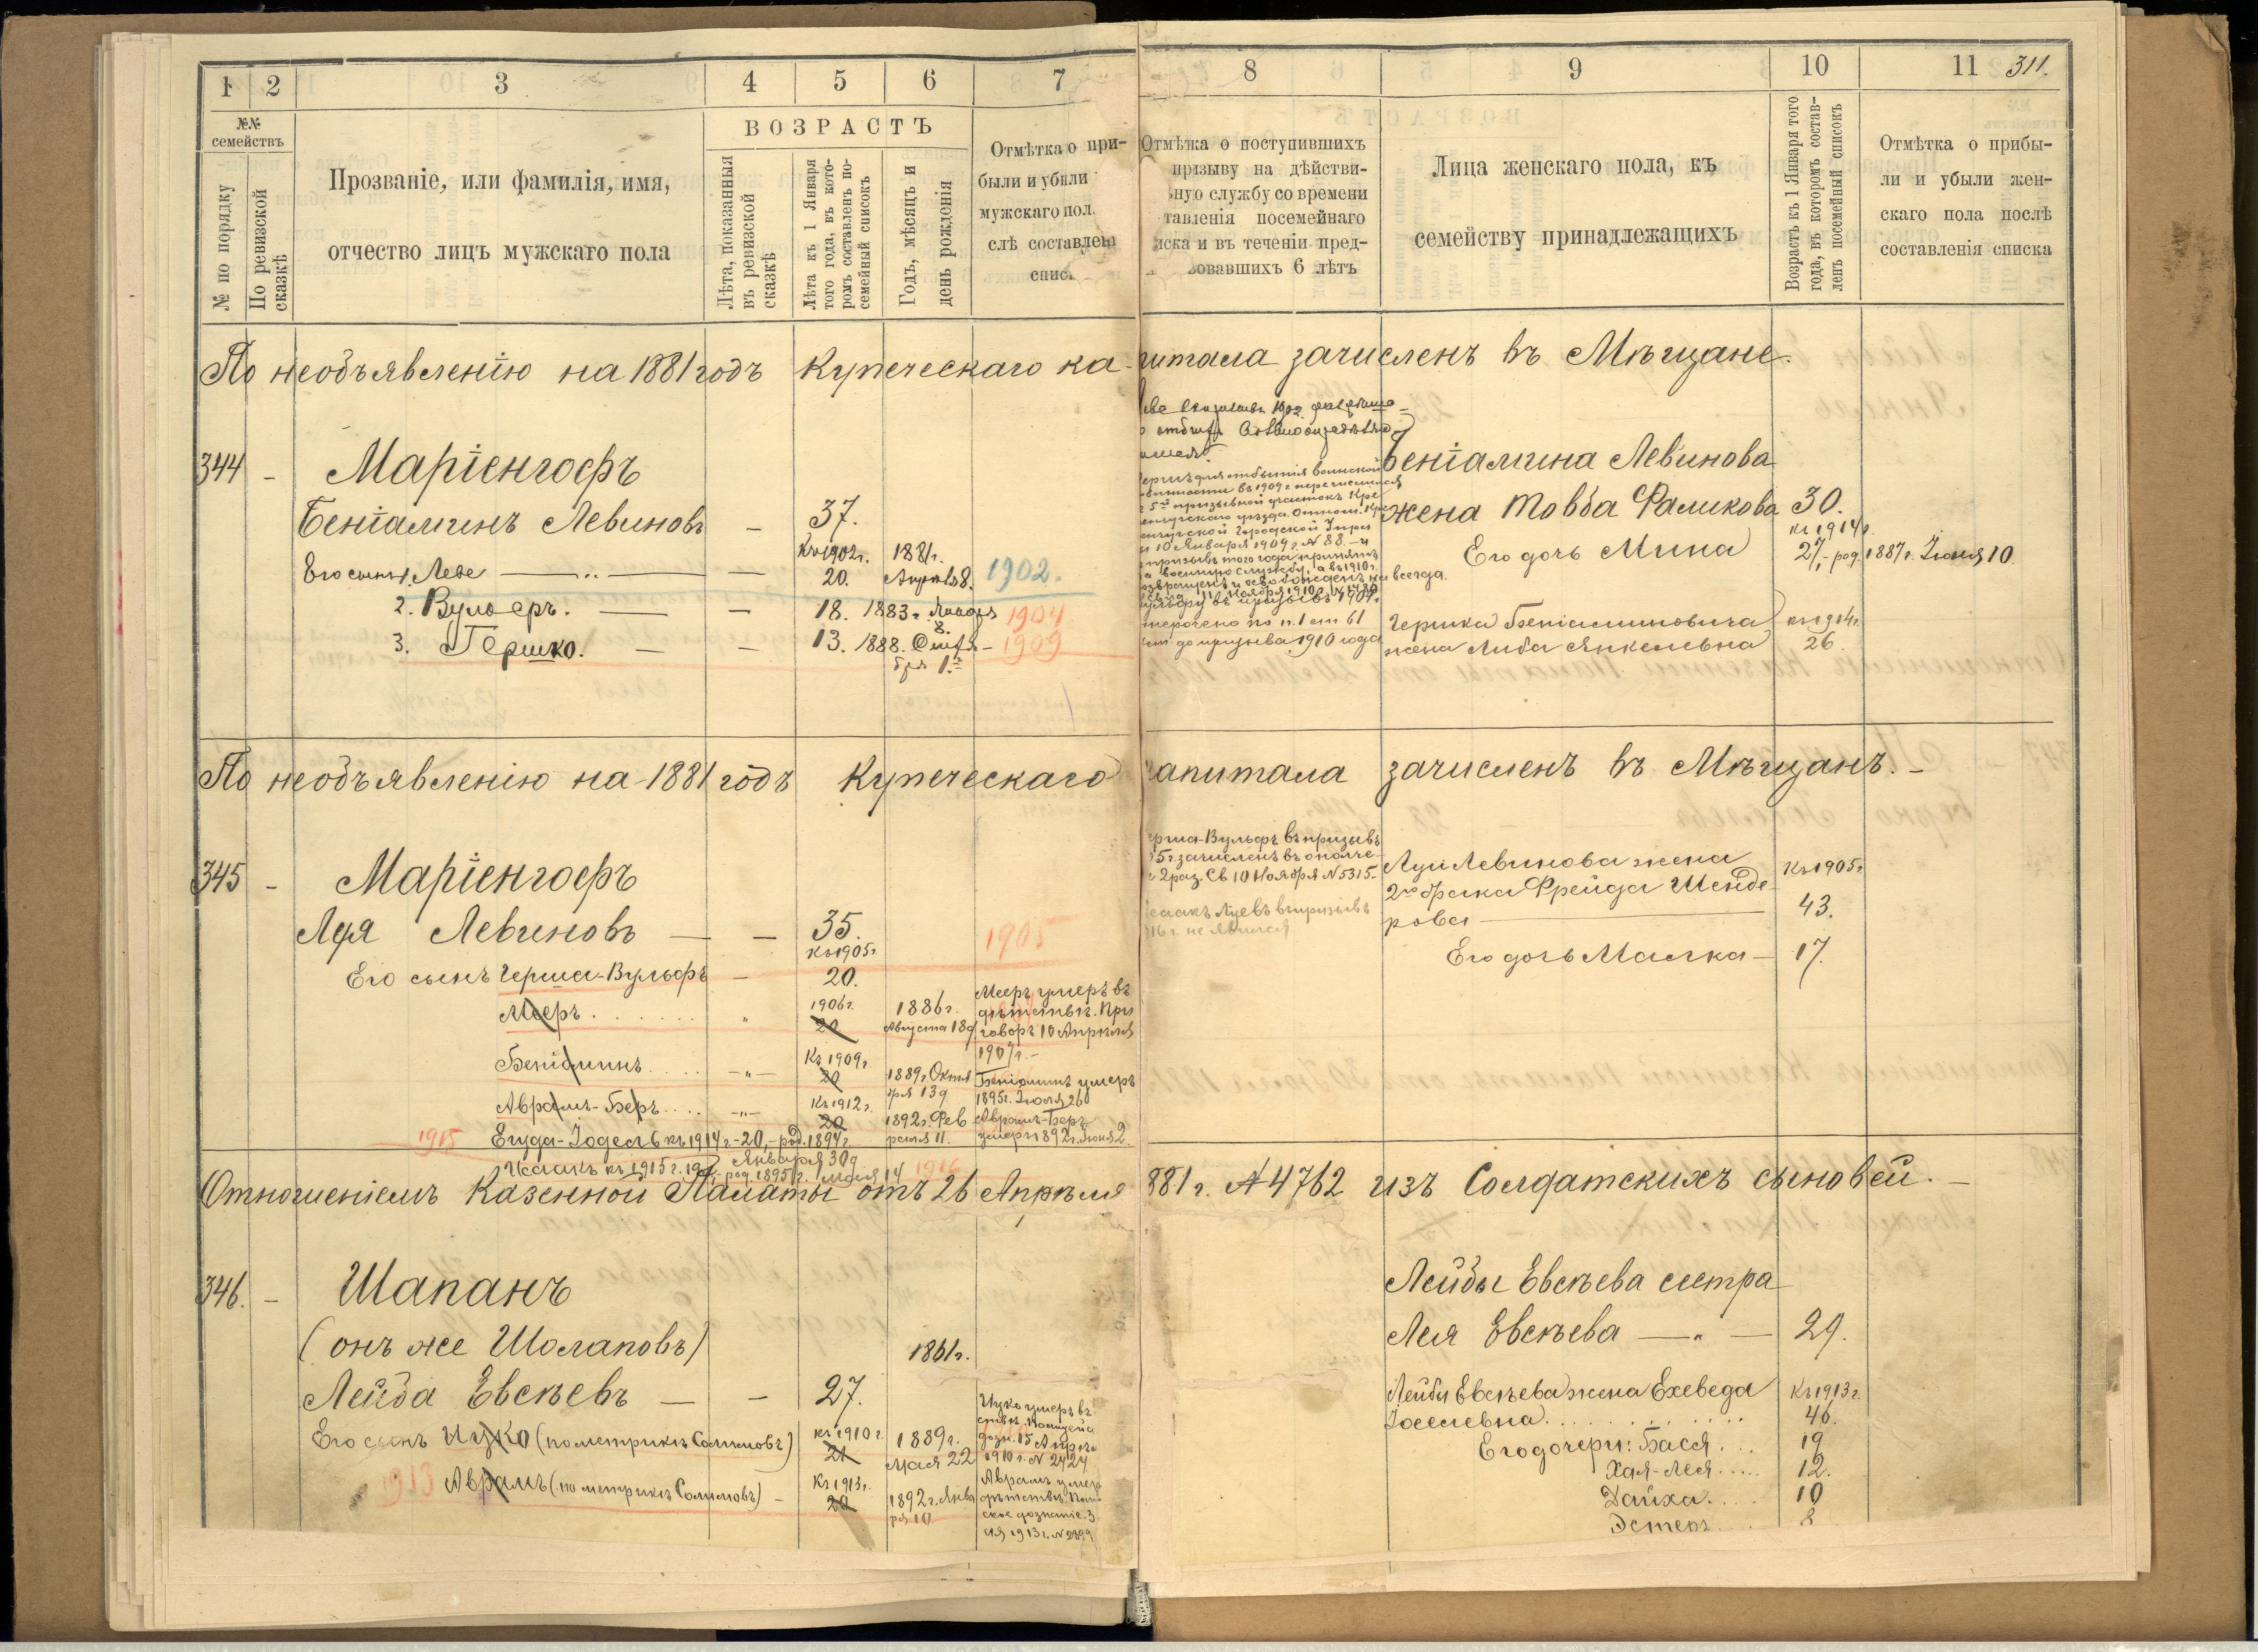 1 2 3 4 5 6 7 8 9 10 11 311.
№№ семействъ
№ по порядку
По ревизской сказкѣ
Прозваніе, или фамилія, имя,
отчество лицъ мужскаго пола
ВОЗРАСТЪ
Лѣта, показанныя
въ ревизской
сказкѣ
Лѣта къ 1 Января
того года, въ кото-
ромъ составленъ по-
семейный списокъ
Годъ, мѣсяцъ и
день рожденія
Отмѣтка о при-
были и убыли
мужскаго пол
слѣ составлен
спис
Отмѣтка о поступившихъ
призыву на дѣйстви-
ную службу со времени
тавленія посемейнаго
иска и въ теченіи пред-
вовавшихъ 6 лѣтъ
Лица женскаго пола, къ
семейству принадлежащихъ
Возрастъ къ 1 Января того
года, въ которомъ состав-
ленъ посемейный списокъ
Отмѣтка о прибы-
ли и убыли жен-
скаго пола послѣ
составленія списка
По необъявленію на 1881 годъ Купеческаго ка-питала зачисленъ въ Мѣщане.
344 - Маріенгофъ
Беніаминъ Левиновъ — 37.
Къ 1902г. 1881г.
Его сынъ 1. Лебе — — 20. Августа 8. 1902.
2. Вульфъ. — — 18. 1883г. Января 8. 1904
3. Гершко. — — 13. 1888. Октя-
бря 1. 1909
отбытія воинской
въ 1909 г. перечислился
5й призывной участокъ Кре
уѣзда. Отнош.
Городской
10 Января 1909 г. № 88. — и
призывъ того года принятъ
военную службу, а въ 1910 г.
освобожденъ на всегда.
въ призывъ 1904г.
отсрочено по п. 1 ст 61
до призыва 1910 года
Беніамина Левинова
жена Товба Фаликова 30.
къ 1914г.
Его дочь Мина 27,- род. 1887г. Іюня 10.
Гершка Беніаминовича къ 1914г.
жена Либа Янкелевна 26.
По необъявленію на 1881 годъ Купеческаго капитала зачисленъ въ Мѣщанъ. -
345 - Маріенгофъ
Луя Левиновъ — — 35.
Къ 1905г. 1905
Его сынъ Герша-Вульфъ — 20.
1906г. 1886г.
Мееръ . . . . . . " 20 Августа 18д
Мееръ умеръ въ
дѣтствѣ. При
говоръ 10 Апрѣля
1907г. -
Къ 1909г.
Беніаминъ . . . . —"— 20 1889г. Октя
бря 13д
Беніаминъ умеръ
1895г. Іюля 26
Къ 1912г.
Абрамъ-Беръ . . . . —"— 20 1892г. Фев
раля 11.
Абрамъ-Беръ
умеръ 1892г. Іюня 2
1915 Егуда-Іодесъ къ 1914 г.-20,-род. 1894г.
Января 30д
Исаакъ къ 1915г. 19 род. 1895г. Мая 14 1916
ерша-Вульфъ въ призывъ
5 г. зачисленъ въ ополче-
2 раз. Св 10 Ноября № 5315.
саакъ Луевъ въ призывъ
16 г. не явился
Луи Левинова жена Къ 1905г.
2го брака Фрейда Шенде-
рова — 43.
Его дочь Малка — 17.
Отношеніемъ Казенной Палаты отъ 26 Апрѣля 881г. № 4762 изъ Солдатскихъ сыновей. —
346. - Шапанъ
(онъ же Шолаповъ) 1861г.
Лейба Евсѣевъ — — 27.
Къ 1910 г. 1889г.
Его сынъ Ицко (по метрикѣ Солимовъ) 21 Мая 22
Ицко умеръ въ
1910 г. № 2424
Къ 1913г.
1913 Абрамъ (по метрикѣ Солимовъ) - 20 1892г. Янва
ря 10.
Абрамъ умер
дѣтствѣ.
ское дознаніе 3
1913г. № 2399
Лейбы Евсѣева сестра
Лея Евсѣева —"— 29.
Лейбы Евсѣева жена Ехеведа Къ 1913г.
Іоселевна . . . . . . 46.
Его дочери: Бася . . . 19
Хая-Лея . . . . 12.
Хайка . . . . 10
Эстеръ . . . . 8